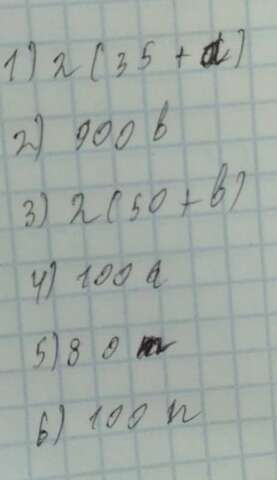 1) 2(35+a)
2) 900 b
3) 2(50+b)
4) 100 a
5) 80 m
6) 100 n